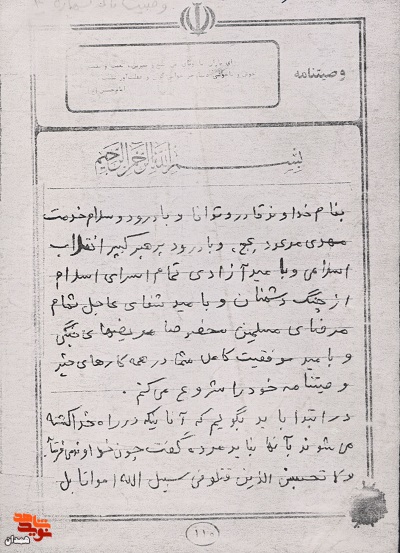 وصیتنامه
بسم الله الرحمن الرحیم
بنام خداوند قادر و توانا و با درود و سلام خدمت
مهدی موعود عج و با درود برهبر کبیر انقلاب
اسلامی و با امید آزادی تمام اسرای اسلام
از چنگ دشمنان و با امید شفای عاجل تمام
مرضای مسلمین مخصوصا مریضهای جنگی
و با امید موفقیت کامل شما در همه کارهای خیر
وصیتنامه خود را شروع می کنم.
در ابتدا باید بگویم که آنانیکه در راه خدا کشته
می شوند بآنها نباید مرده گفت چون خداوند می فرماید
ولا تحسبن الذین قتلو فی سبیل الله امواتا بل
۱۱۰
شاهد
نوید
همدان